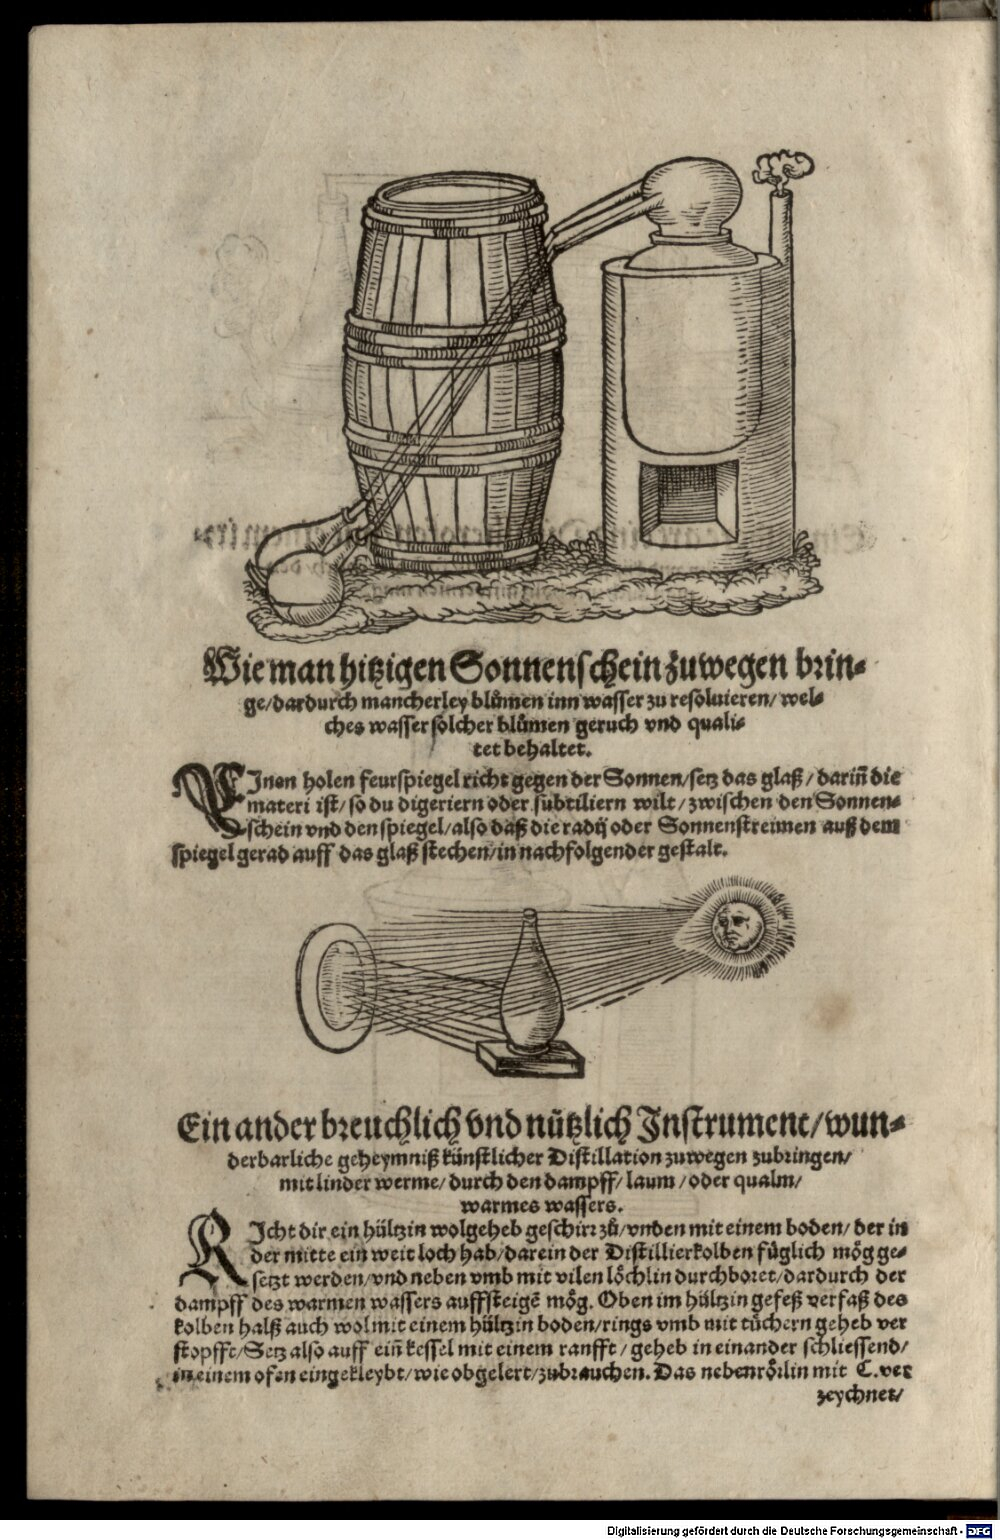 Wie man hitzigen Sonnenschein zuwegen brin⸗
ge/dardurch mancherley blůmen inn wasser zu resoluieren/ wel⸗
ches wasser solcher blůmen geruch vnd quali⸗
tet behaltet.
EInen holen feurspiegel richt gegen der Sonnen/setz das glaß/ darinn̄ die
materi ist/ so du digeriern oder subtiliern wilt/ zwischen den Sonnen⸗
schein vnd den spiegel/also daß die radij oder Sonnenstreimen auß dem
spiegel gerad auff das glaß stechen/in nachfolgender gestalt.
Ein ander breuchlich vnd nützlich Instrument/wun⸗
derbarliche geheymniß künstlicher Distillation zuwegen zubringen/
mit linder werme/ durch den dampff/ laum/ oder qualm/
warmes wassers.
RIcht dir ein hültzin wolgeheb geschirr zů/vnden mit einem boden/ der in
der mitte ein weit loch hab/darein der Distillierkolben füglich mög ge⸗
setzt werden/vnd neben vmb mit vilen löchlin durchboret/dardurch der
dampff des warmen wassers auffsteigē mög. Oben im hültzin gefeß verfaß des
kolben halß auch wol mit einem hültzin boden/rings vmb mit tüchern geheb ver
stopfft/Setz also auff ein̄ kessel mit einem ranfft/ geheb in einander schliessend/
in einem ofen eingekleybt/wie obgelert/zubrauchen. Das nebenrörlin mit C.ver
zeychnet/
Digitalisierung gefördert durch die Deutsche Forschungsgemeinschaft - DFG